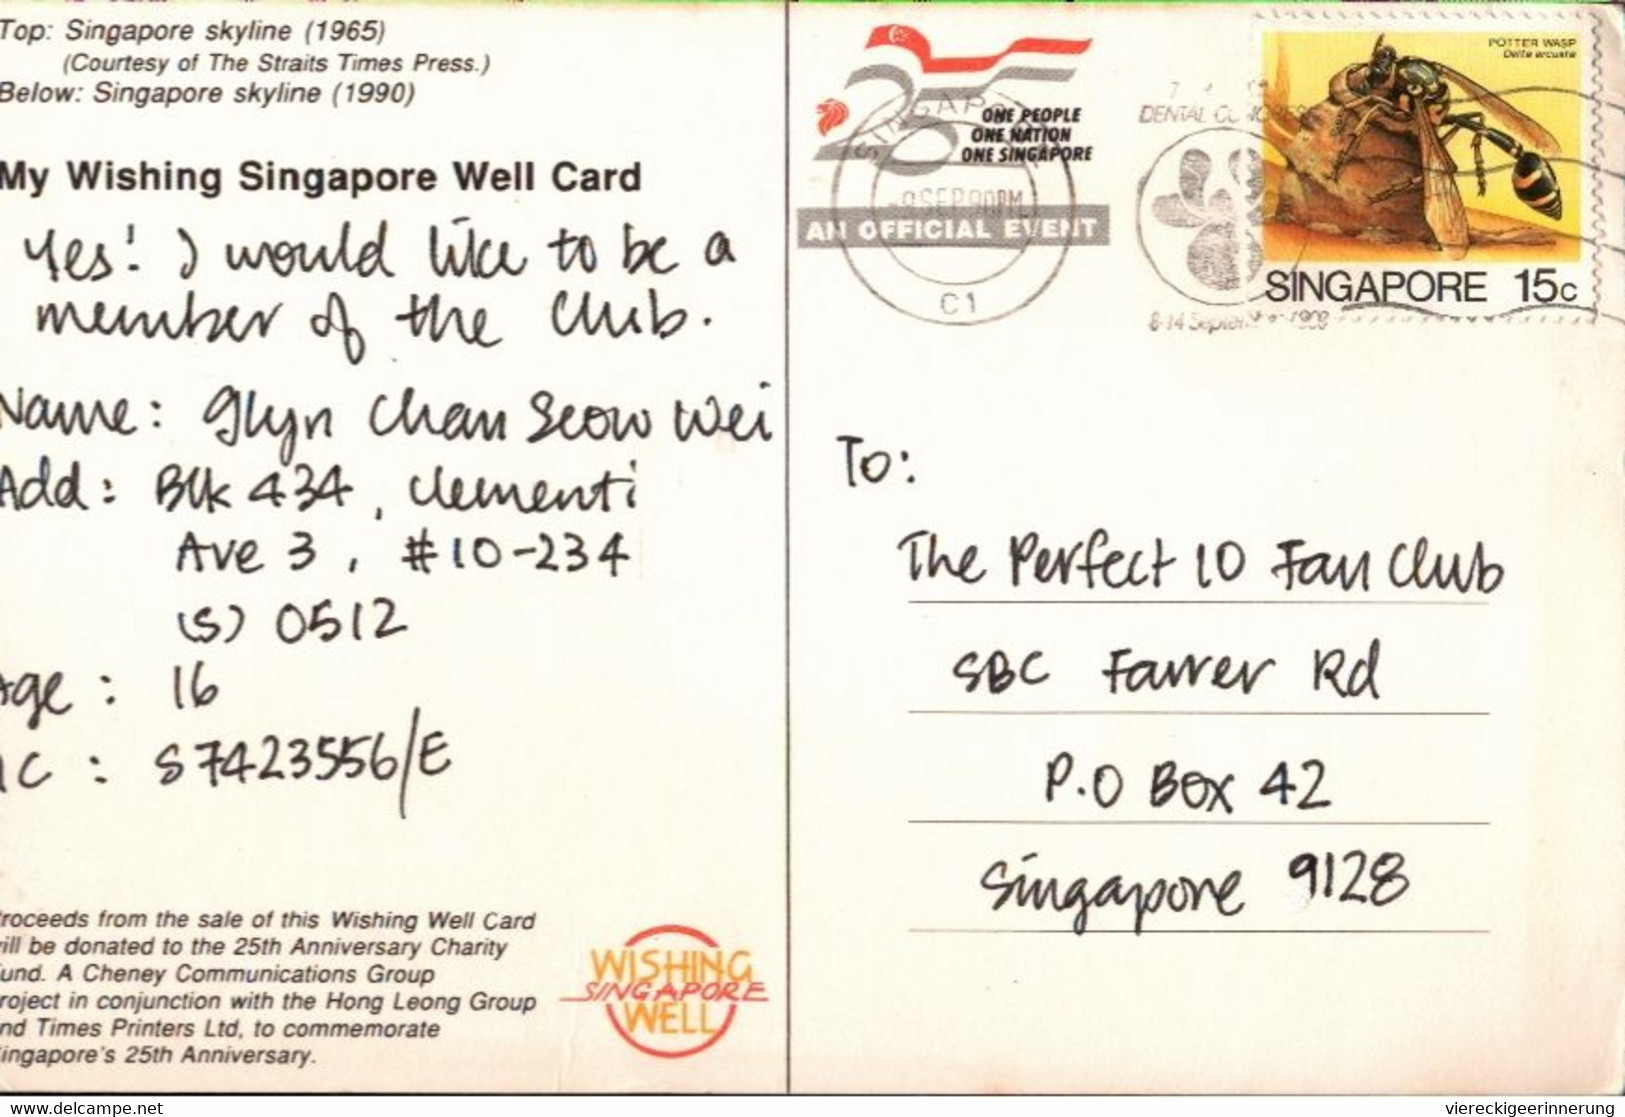 Top: Singapore skyline (1965)
(Courtesy of The Straits Times Press.)
Below: Singapore skyline (1990)
My Wishing Singapore Well Card
Yes! I would like to be a
member of the Club.
Name: Glyn Chan Seow Wei
Add: Blk 434, Clementi
Ave 3, #10-234
(S) 0512
Age: 16
IC: S7423556/E
roceeds from the sale of this Wishing Well Card
ill be donated to the 25th Anniversary Charity
und. A Cheney Communications Group
roject in conjunction with the Hong Leong Group
nd Times Printers Ltd, to commemorate
ingapore's 25th Anniversary.
WISHING
SINGAPORE
WELL
25
ONE PEOPLE
ONE NATION
ONE SINGAPORE
AN OFFICIAL EVENT
SINGAPORE
SEP 90 PM
C1
DENTAL
8-14 September
POTTER WASP
Delta arcuata
SINGAPORE 15c
To:
The Perfect 10 Fan Club
SBC Farrer Rd
P.O Box 42
Singapore 9128
www.delcampe.net
viereckigeerinnerung